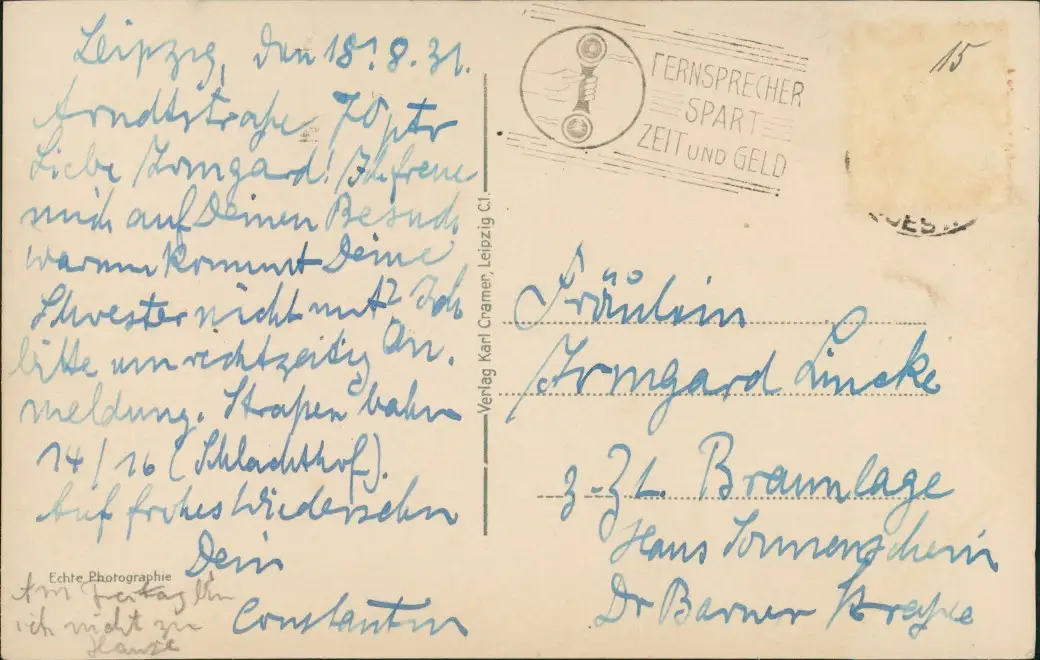 Leipzig, den 18.8.31.
Arndtstraße 70 ptr
Liebe Irmgard! Ich freue
mich auf Deinen Besuch
warum kommt Deine
Schwester nicht mit? Ich
bitte um rechtzeitig An.
meldung. Straßenbahn
14/16 (Schlachthof).
Auf frohes Wiedersehn
Dein
Constantin
Am Freitag bin
ich nicht zu
Hause
Echte Photographie
Verlag Karl Cramer, Leipzig C1.
FERNSPRECHER
SPART
ZEIT UND GELD
15
Fräulein
Irmgard Lincke
z. Zt. Braunlage
Haus Sonnenschein
Dr Barner Straße